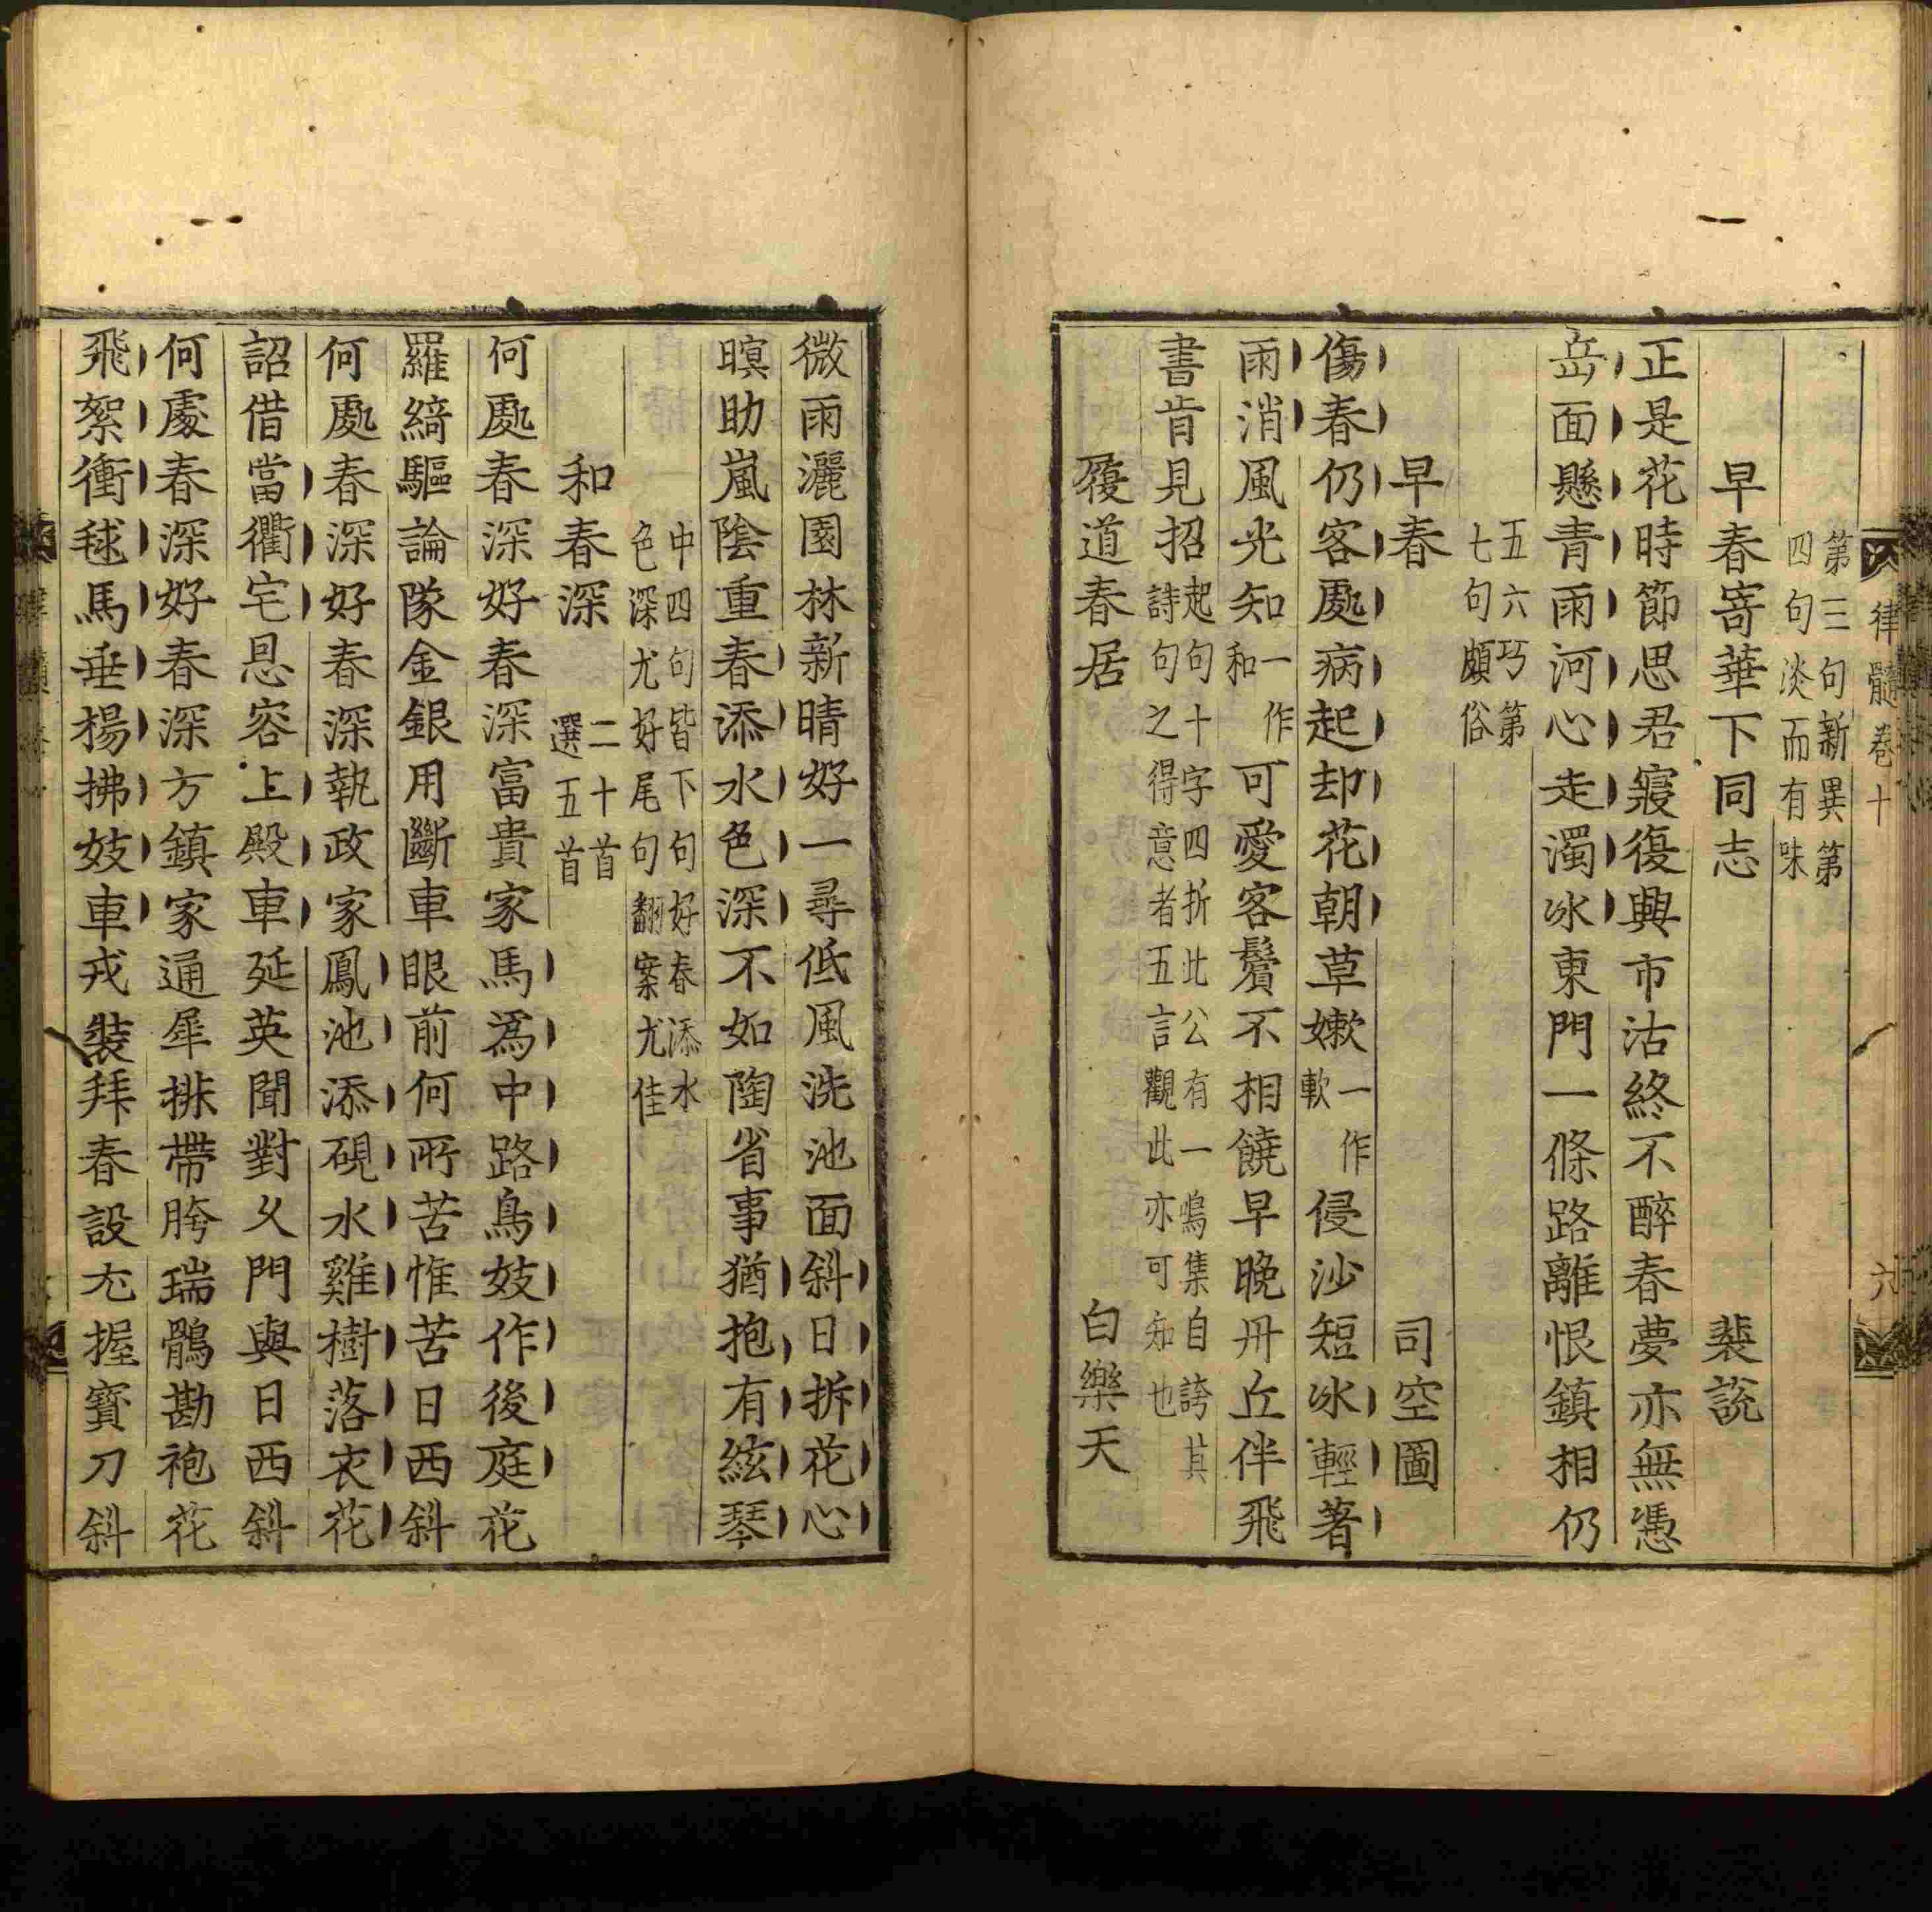 律髓卷十 六
第三句新異第
四句淡而有味
早春寄華下同志 裴説
正是花時節思君寢復興市沽終不醉春夢亦無憑
岳面懸青雨河心走濁冰東門一條路離恨鎮相仍
五六巧第
七句頗俗
早春 司空圖
傷春仍客處病起却花朝草嫰一作軟侵沙短冰輕著
雨消風光知一作和可愛客鬢不相饒早晚丹丘伴飛
書肯見招起句十字四折此公有一鳴集自誇其
詩句之得意者五言觀此亦可知也
履道春居 白樂天
微雨灑園林新晴好一尋低風洗池面斜日拆花心
暝助嵐陰重春添水色深不如陶省事猶抱有絃琴
中四句皆下句好春添水
色深尤好尾句翻案尤佳
和春深 二十首
選五首
何處春深好春深富貴家馬為中路鳥妓作後庭花
羅綺驅論隊金銀用斷車眼前何所苦惟苦日西斜
何處春深好春深執政家鳳池添硯水雞樹落衣花
詔借當衢宅恩容上殿車延英聞對久門與日西斜
何處春深好春深方鎮家通犀排帶胯瑞鶻勘袍花
飛絮衝毬馬垂楊拂妓車戎裝拜春設左握寶刀斜